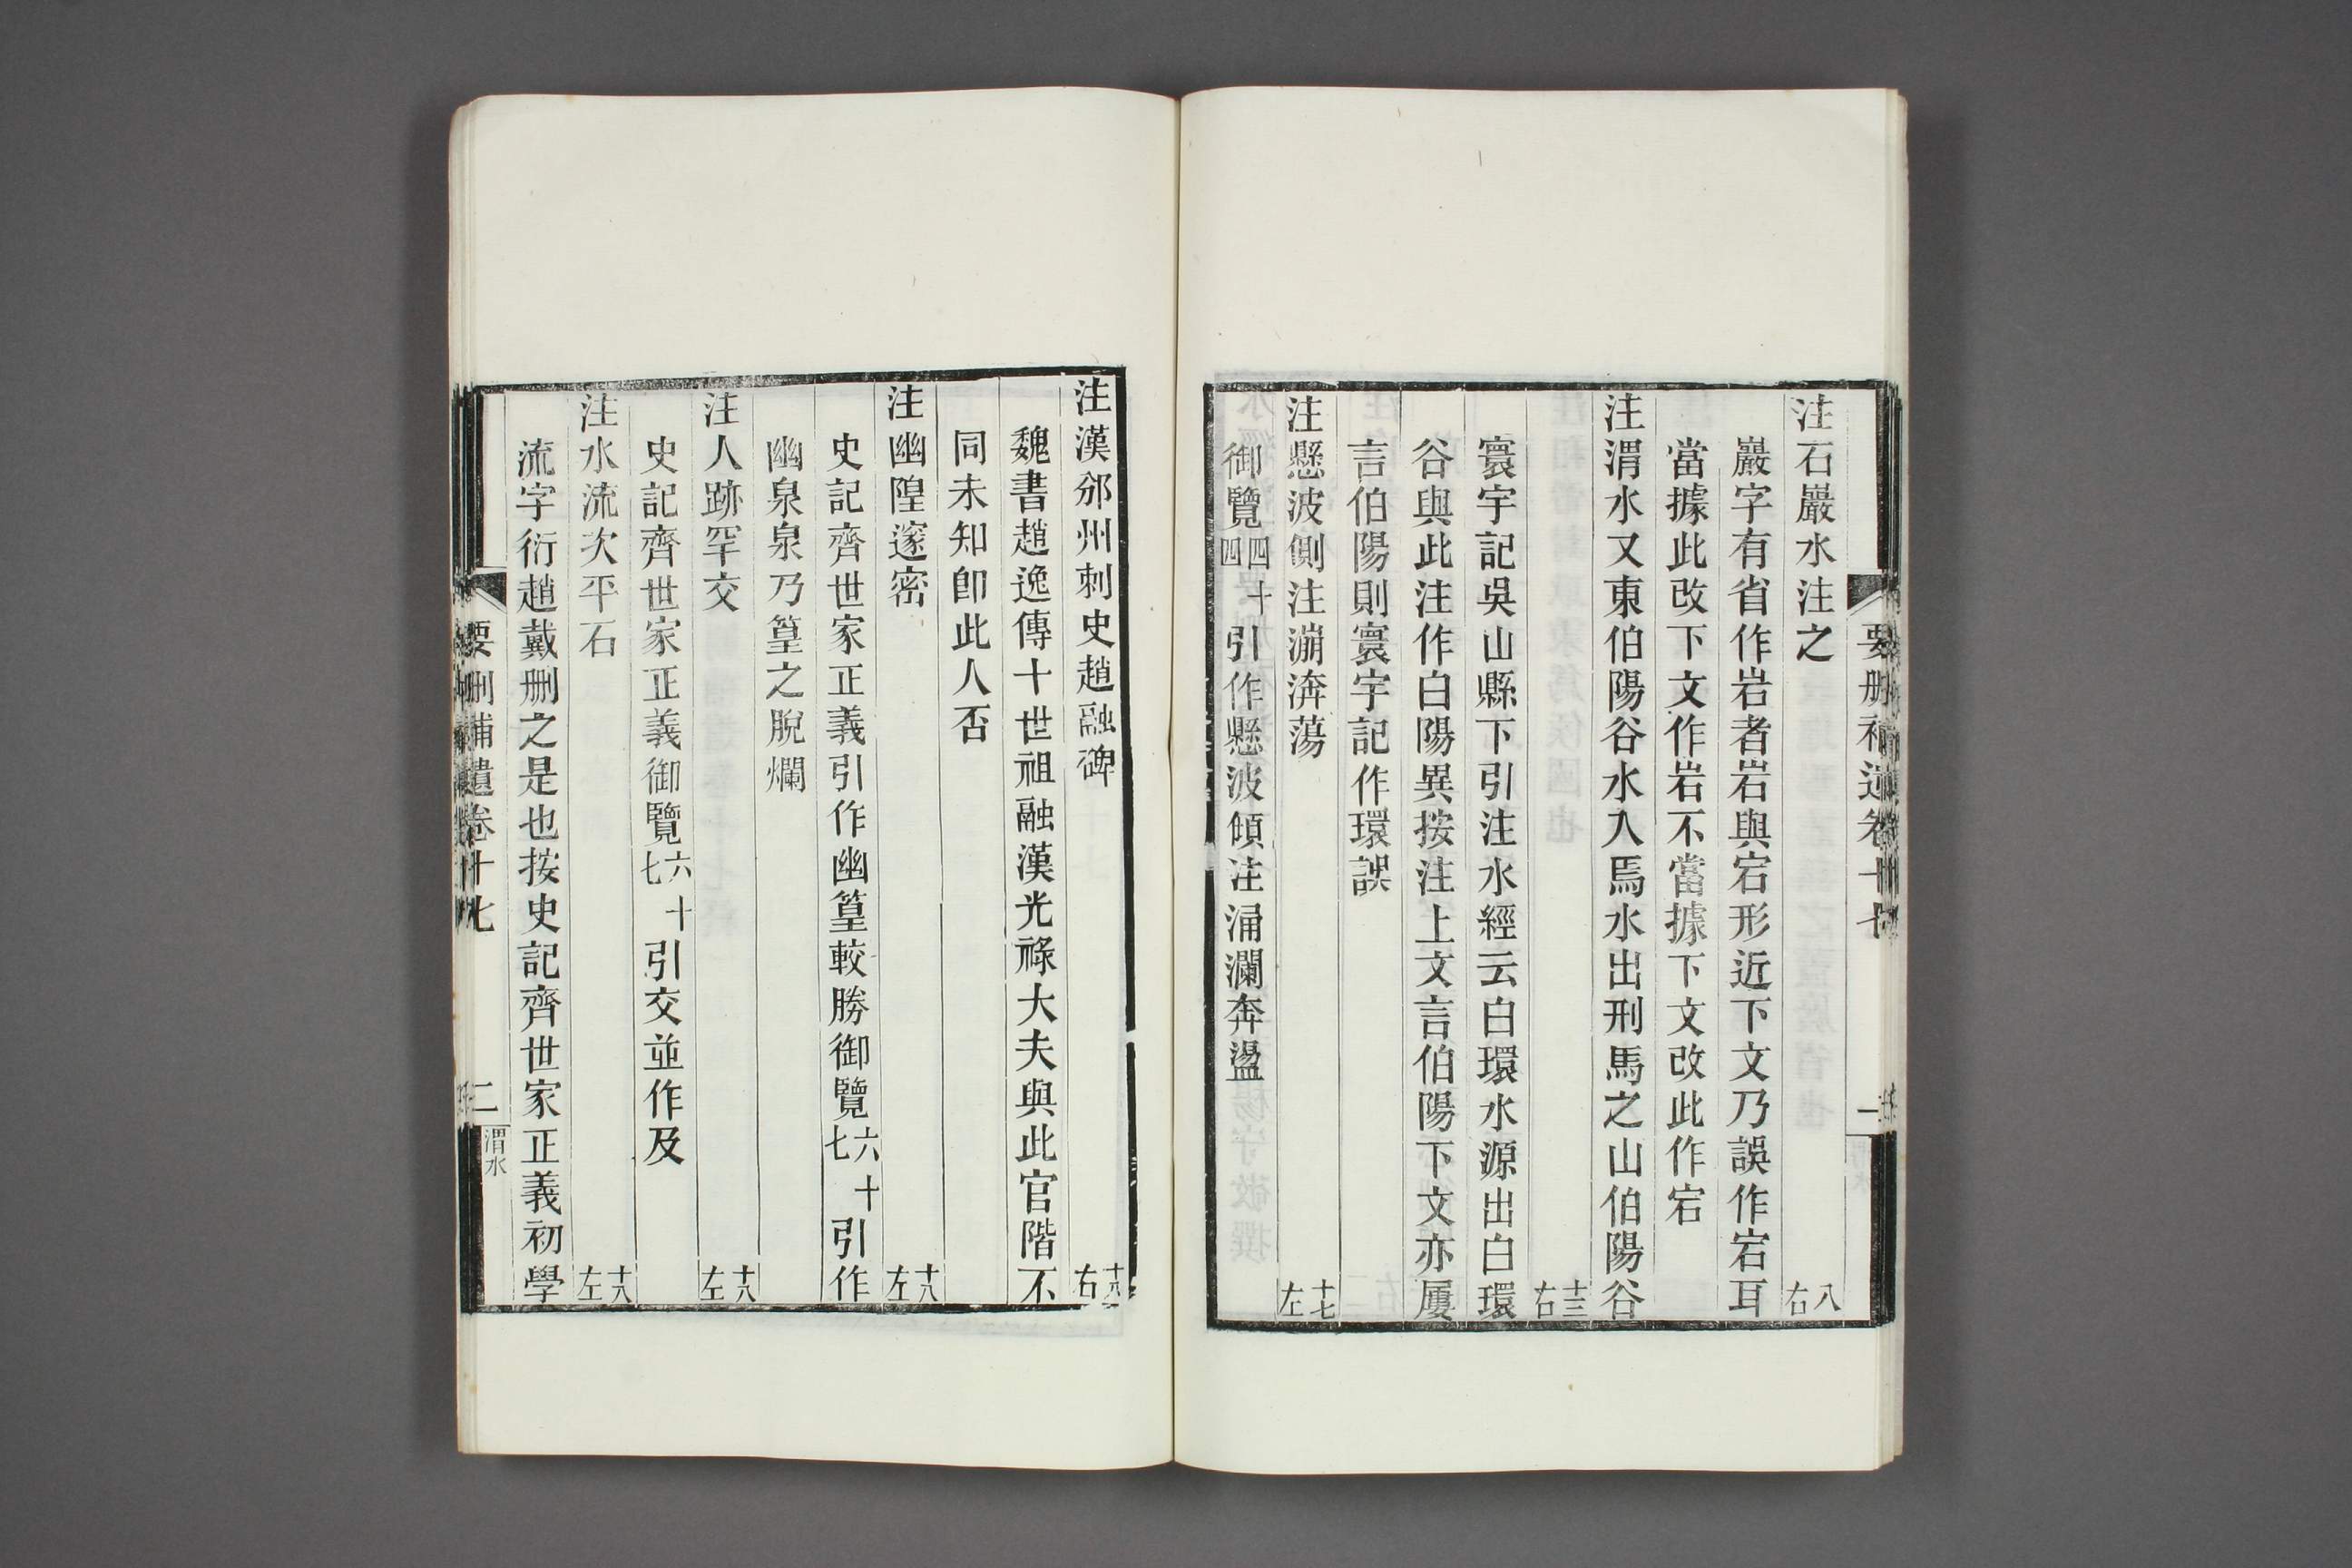 注石巖水注之 八右
巖字有省作岩者岩與宕形近下文乃誤作宕耳
當據此改下文作岩不當據下文改此作宕
注渭水又東伯陽谷水入焉水出刑馬之山伯陽谷
十三右
寰宇記吳山縣下引注水經云白環水源出白環
谷與此注作白陽異按注上文言伯陽下文亦屢
言伯陽則寰宇記作環誤
注懸波側注漰渀蕩 十七左
御覽四十四引作懸波傾注涌瀾奔盪
注漢邠州刺史趙融碑 十八右
魏書趙逸傳十世祖融漢光祿大夫與此官階不
同未知卽此人否
注幽隍邃密 十八左
史記齊世家正義引作幽篁較勝御覽六十七引作
幽泉泉乃篁之脫爛
注人跡罕交 十八左
史記齊世家正義御覽六十七引交並作及
注水流次平石 十八左
流字衍趙戴刪之是也按史記齊世家正義初學
要刪補遺卷十七
二
渭水